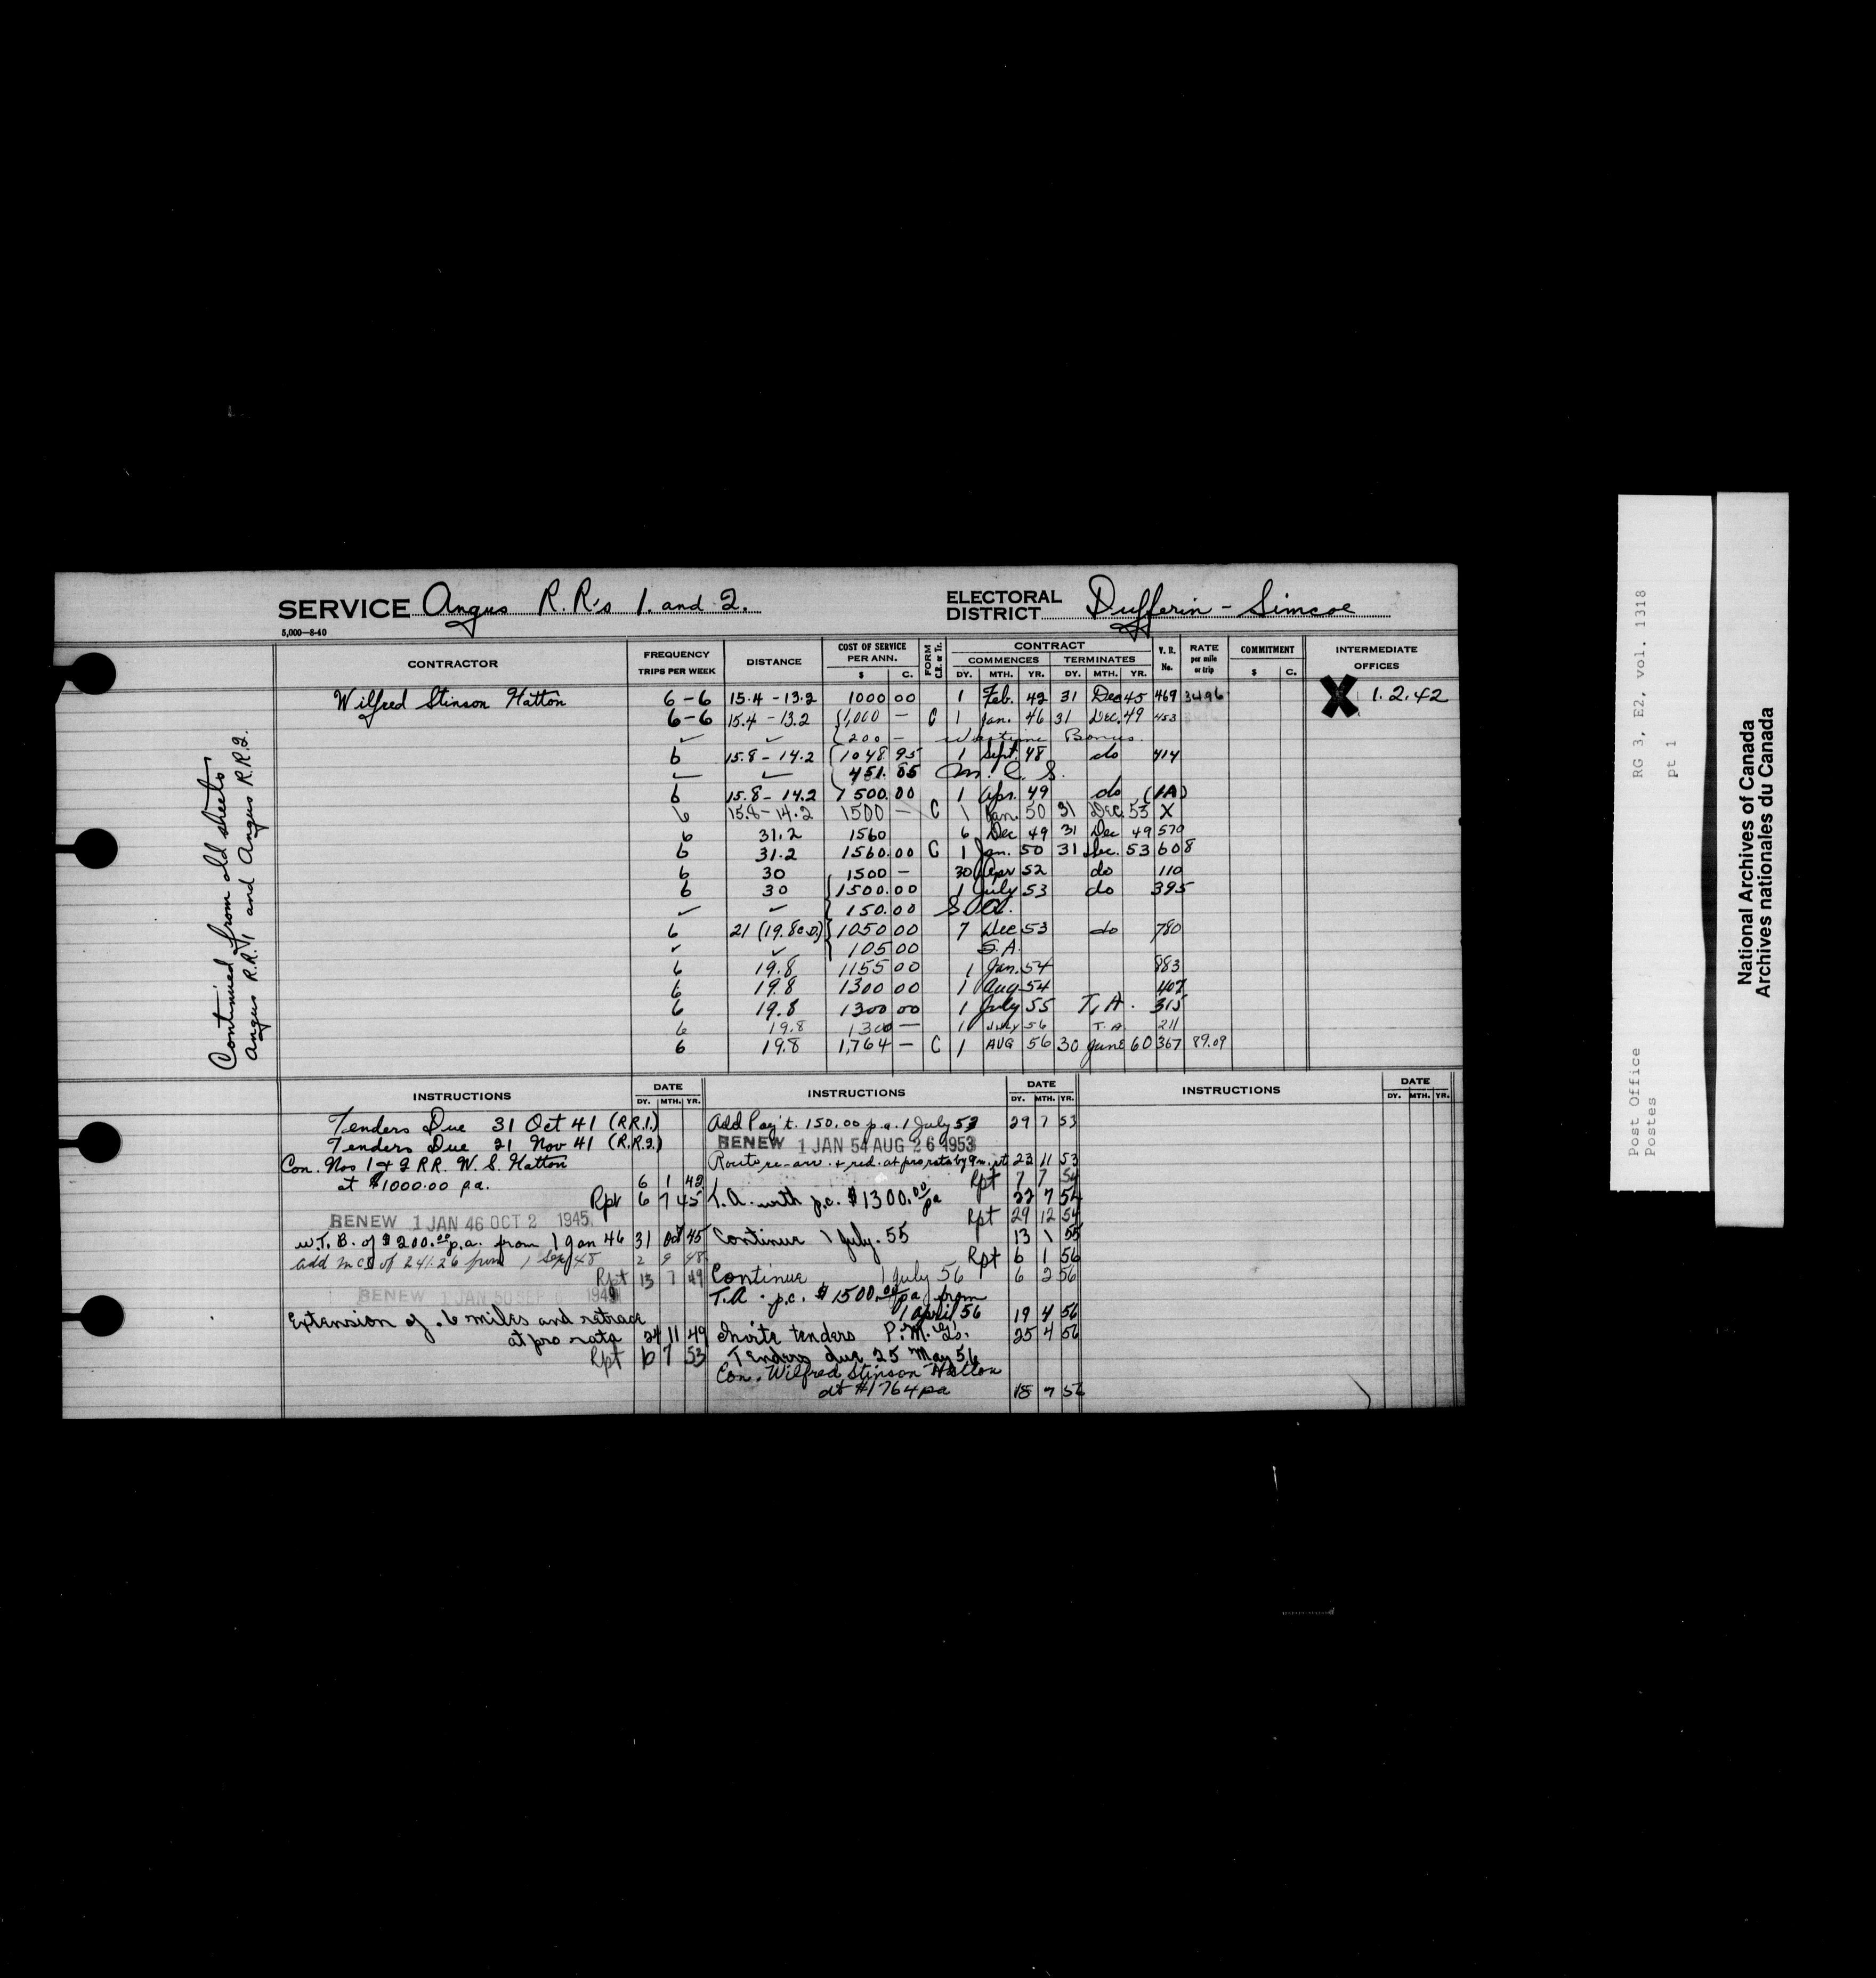 SERVICE Angus R.R's 1. and 2.
ELECTORAL DISTRICT Dufferin - Simcoe
5,000—8-40
CONTRACTOR FREQUENCY TRIPS PER WEEK DISTANCE COST OF SERVICE PER ANN. $ C. FORM C.R. or Tr. CONTRACT COMMENCES DY. MTH. YR. TERMINATES DY. MTH. YR. V. R. No. RATE per mile or trip COMMITMENT $ C. INTERMEDIATE OFFICES
Wilfred Stinson Hatton 6-6 15.4 - 13.2 1000 00 1 Feb. 42 31 Dec 45 469 3496 X 1.2.42
6-6 15.4 - 13.2 1,000 — C 1 Jan. 46 31 Dec. 49 453
✓ ✓ 200 — Wartime Bonus
6 15.8 - 14.2 1048 95 1 Sept. 48 do 414
✓ ✓ 451.05 M. C. S.
6 15.8 - 14.2 1500.00 1 Apr. 49 do (1A)
6 15.8 - 14.2 1500 — C 1 Jan. 50 31 Dec. 53 X
6 31.2 1560 6 Dec 49 31 Dec 49 579
6 31.2 1560.00 C 1 Jan. 50 31 Dec. 53 608
6 30 1500 — 30 Apr 52 do 110
6 30 1500.00 1 July 53 do 395
✓ ✓ 150.00 S.A.
6 21 (19.8 C.D.) 1050 00 7 Dec 53 do 780
✓ ✓ 105 00 S.A.
6 19.8 1155 00 1 Jan. 54 883
6 19.8 1300 00 1 Aug 54 407
6 19.8 1300 00 1 July 55 T.A. 315
6 19.8 1300 — 1 July 56 T.A 211
6 19.8 1,764 — C 1 AUG 56 30 June 60 367 89.09
Continued from old sheets
Angus R.R. 1 and Angus R.R. 2.
INSTRUCTIONS DATE DY. MTH. YR. INSTRUCTIONS DATE DY. MTH. YR. INSTRUCTIONS DATE DY. MTH. YR.
Tenders Due 31 Oct 41 (R.R.1.)
Tenders Due 21 Nov 41 (R.R.2.)
Con. Nos 1 & 2 RR. W. S. Hatton
at $1000.00 p.a. 6 1 42
Rpt 6 7 45
RENEW 1 JAN 46 OCT 2 1945
W.T.B. of $200.00 p.a. from 1 Jan 46 31 Oct 45
add mcs of 241.26 from 1 Sep 48 2 9 48
Rpt 13 7 49
RENEW 1 JAN 50 SEP 1949
Extension of .6 miles and retrace
at pro rata 24 11 49
Rpt 6 7 53
Add Pay't. 150.00 p.a. 1 July 53 29 7 53
RENEW 1 JAN 54 AUG 26 1953
Route re-arr. & red. at pro rata by 9 m. rt 23 11 53
Rpt 7 7 54
T.A. with p.c. $1300.00 pa 22 7 54
Rpt 29 12 54
Continue 1 July. 55 13 1 55
Rpt 6 1 56
Continue 1 July 56 6 2 56
T.A. p.c. $1500.00 pa from
1 April 56 19 4 56
Invite tenders P.M. 25 4 56
Tenders due 25 May 56
Con. Wilfred Stinson Hatton
at $1764 pa 18 7 56
Post Office RG 3, E2, vol. 1318
Postes pt 1
National Archives of Canada
Archives nationales du Canada